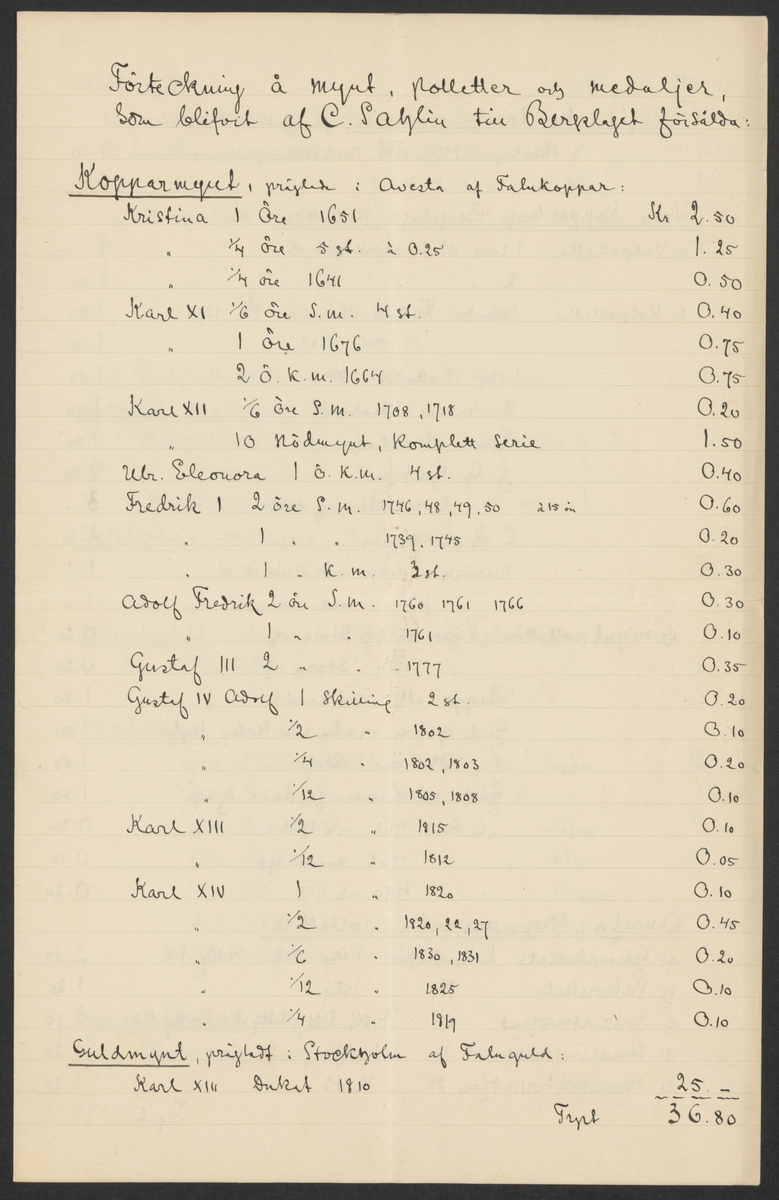 Förteckning å mynt, polletter och medaljer,
som blifvit af C. Sahlin till Bergslaget försålda:
Kopparmynt, präglade i Avesta af Falukoppar:
Kristina 1 Öre 1651 Kr 2.50
„ 1/4 öre 5 st. à 0.25 1.25
„ 1/4 öre 1641 0.50
Karl XI 1/6 öre S.m. 4 st. 0.40
„ 1 Öre 1676 0.75
2 Ö. K.m. 1664 0.75
Karl XII 1/6 Öre S.m. 1708, 1718 0.20
„ 10 Nödmynt, komplett serie 1.50
Ulr. Eleonora 1 ö. K.m. 4 st. 0.40
Fredrik I 2 öre S.m. 1746, 48, 49, 50 à 15 ör 0.60
„ 1 „ „ 1739, 1745 0.20
„ 1 „ K.m. 3 st. 0.30
Adolf Fredrik 2 öre S.m. 1760 1761 1766 0.30
„ 1 „ „ 1761 0.10
Gustaf III 2 „ „ 1777 0.35
Gustaf IV Adolf 1 Skilling 2 st. 0.20
„ 1/2 „ 1802 0.10
„ 1/4 „ 1802, 1803 0.20
„ 1/12 „ 1805, 1808 0.10
Karl XIII 1/2 „ 1815 0.10
„ 1/12 „ 1812 0.05
Karl XIV 1 „ 1820 0.10
„ 1/2 „ 1820, 22, 27 0.45
„ 1/6 „ 1830, 1831 0.20
„ 1/12 „ 1825 0.10
„ 1/4 „ 1819 0.10
Guldmynt, prägladt i Stockholm af Faluguld:
Karl XIII Dukat 1810 25. —
Trpt 36.80